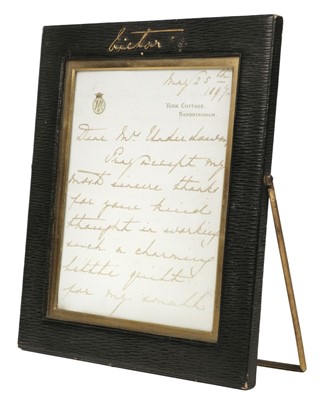 Victor
May 25th
1897
YORK COTTAGE,
SANDRINGHAM.
Dear Mrs
Pray accept my
most sincere thanks
for your kind
thought in working
such a charming
little quilt
for my small